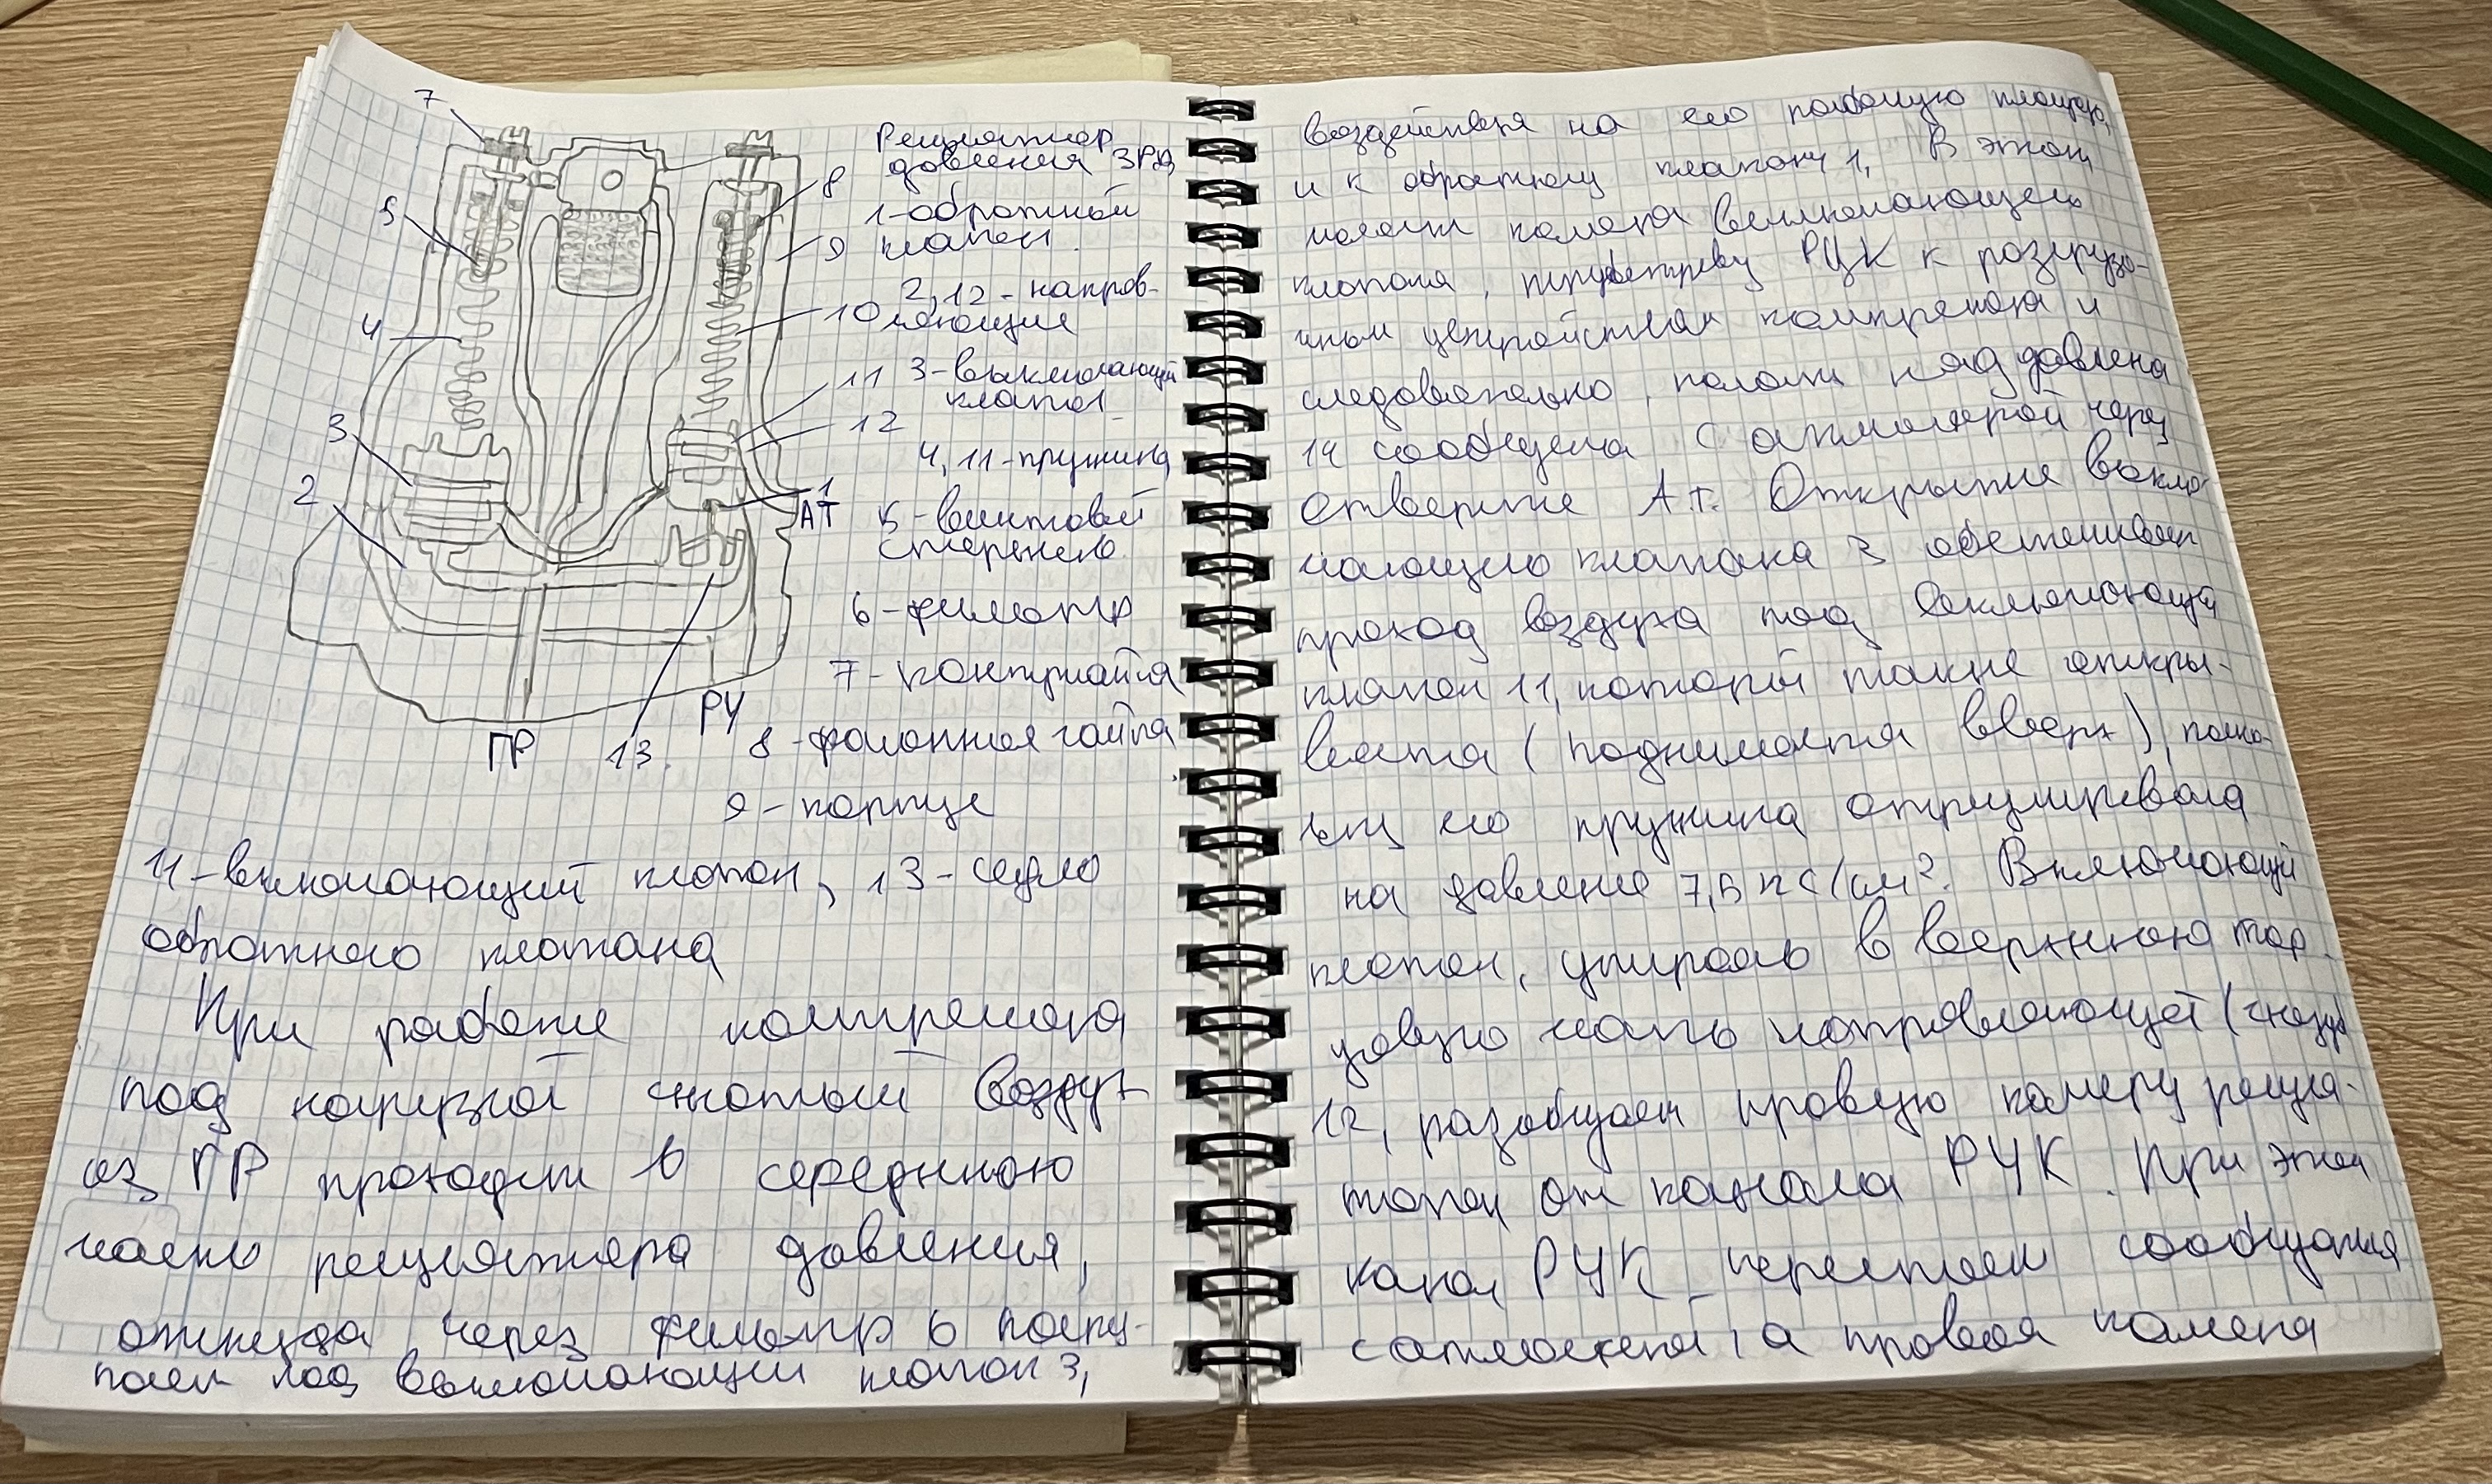 7
5
4
3
2
8
9
10
11
12
1
АТ
ПР
13.
РУ
Регулятор
давления 3РД
1-обратный
клапан.
2,12 - направ-
ляющие
3-выключающий
клапан
4,11-пружина
5-винтовой
стержень
6-фильтр
7-контргайка
8-фасонная гайка
9-корпус
11-включающий клапан, 13-седло
обратного клапана
При работе компресора
под нагрузкой сжатый воздух
из ГР проходит в середнюю
часть регулятора давления,
откуда через фильтр 6 посту-
пает под выключающий клапан 3,
воздействуя на его рабочую площадь,
и к обратному клапану 1, В этот
момент камера выключающего
клапана, РУК к разгрузо-
чным устройствам компресора и
следовательно, полость над давлена
14 сообщена с атмосферой через
отверстие Ат. Открытие выклю
чающего клапана 3 обеспечивает
проход воздуха под включающий
клапан 11, который также откры-
вается (поднимается вверх), поско-
льку его пружина отрегулирована
на давление 7,5 кгс/см². Включающий
клапан, упираясь в верхнюю тор.
цовую часть направляющей (гнезда
12, разобщает правую камеру регуля-
тора от канала РУК. При этом
канал РУК перестает сообщаться
с атмосферой, а правая камера